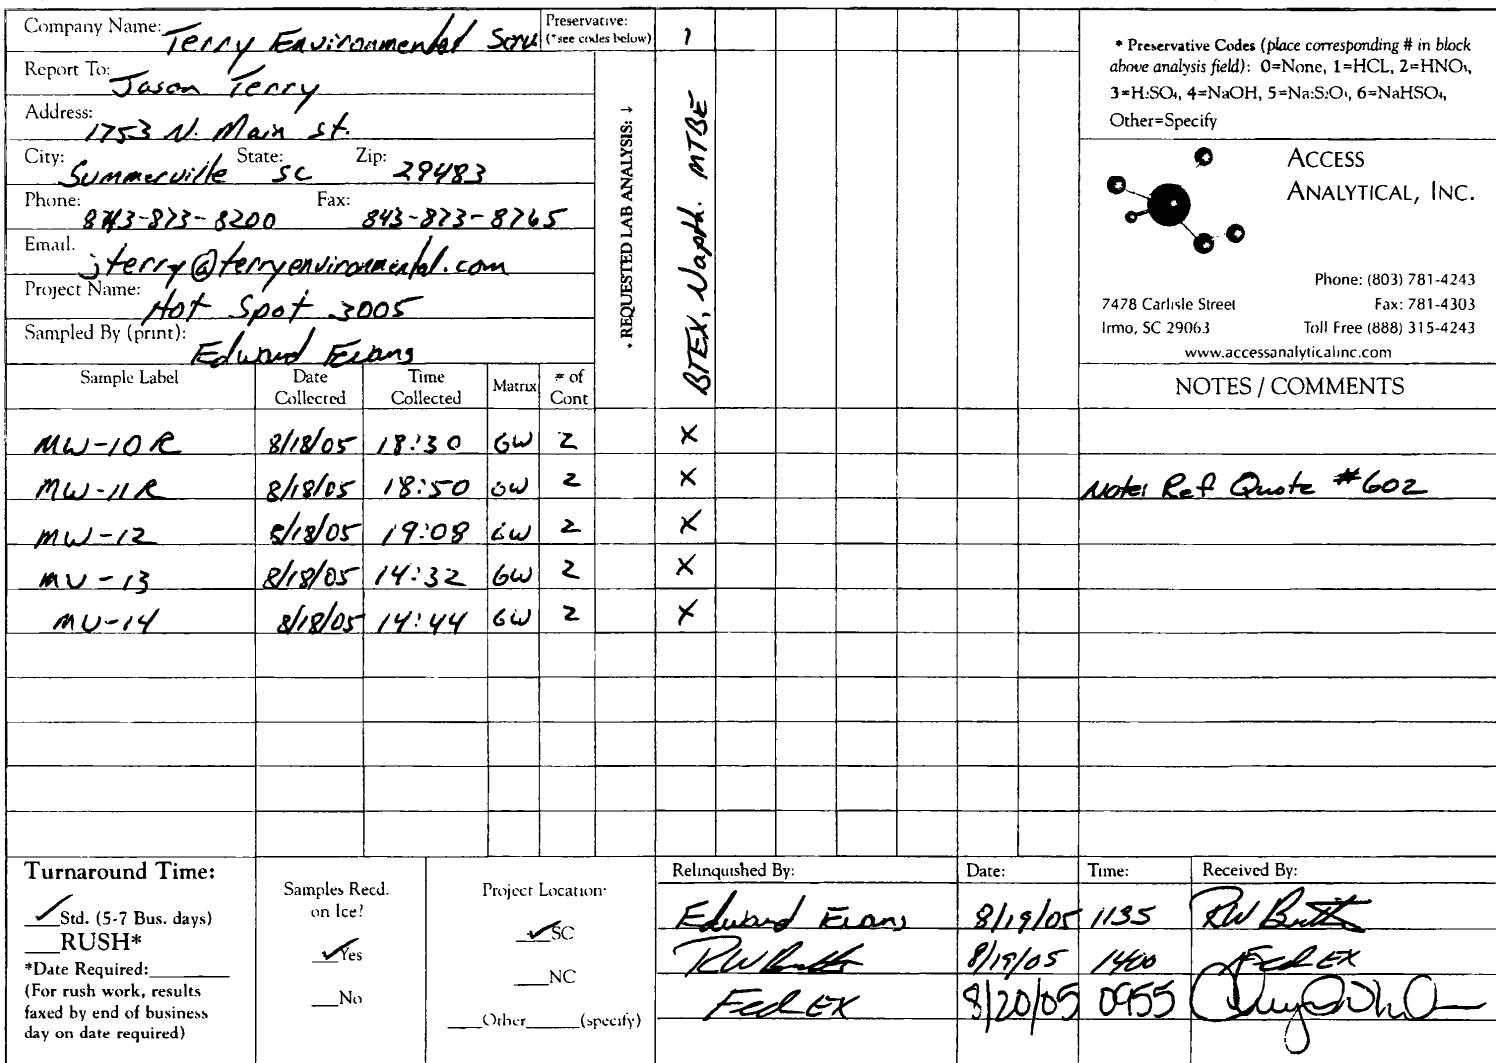 Company Name: Terry Environmental Serv
Preservative: (*see codes below) 1
Report To: Jason Terry
Address: 1753 N. Main St.
City: Summerville State: SC Zip: 29483
Phone: 843-873-8200 Fax: 843-873-8765
Email. jterry@terryenvironmental.com
Project Name: Hot Spot 3005
Sampled By (print): Edward Evans
* REQUESTED LAB ANALYSIS: ↓
BTEX, Napth. MTBE
* Preservative Codes (place corresponding # in block
above analysis field): 0=None, 1=HCL, 2=HNO₃,
3=H₂SO₄, 4=NaOH, 5=Na₂S₂O₃, 6=NaHSO₄,
Other=Specify
ACCESS
ANALYTICAL, INC.
Phone: (803) 781-4243
7478 Carlisle Street Fax: 781-4303
Irmo, SC 29063 Toll Free (888) 315-4243
www.accessanalyticalinc.com
Sample Label Date Collected Time Collected Matrix # of Cont NOTES / COMMENTS
MW-10R 8/18/05 18:30 GW 2 X
MW-11R 8/18/05 18:50 GW 2 X Note: Ref Quote #602
MW-12 8/18/05 19:08 GW 2 X
MW-13 8/18/05 14:32 GW 2 X
MW-14 8/18/05 14:44 GW 2 X
Turnaround Time:
✓ Std. (5-7 Bus. days)
RUSH*
*Date Required:
(For rush work, results
faxed by end of business
day on date required)
Samples Recd.
on Ice?
✓ Yes
No
Project Location:
✓ SC
NC
Other (specify)
Relinquished By: Date: Time: Received By:
Edward Evans 8/19/05 1135
8/19/05 1400 Fed EX
Fed EX 8/20/05 0955